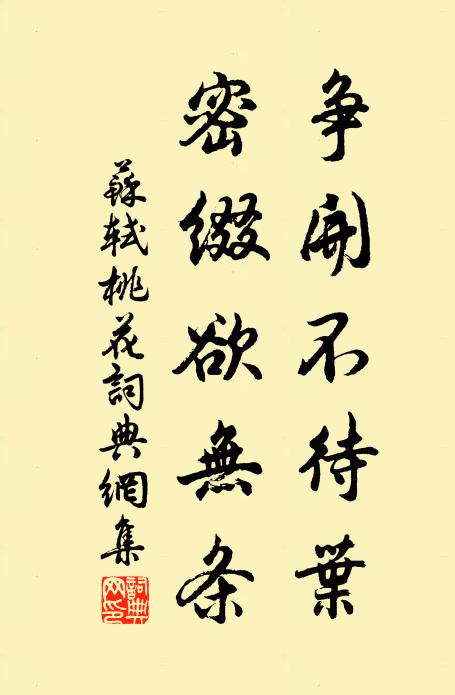 争開不待葉
密綴欲無条
蘇軾桃花詞典網集
詞典網印